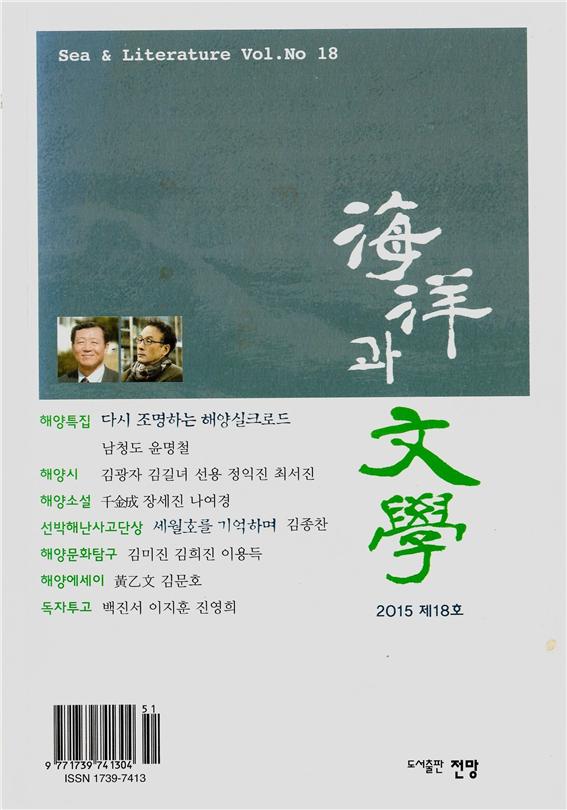 Sea & Literature Vol.No 18
海洋과
文學
해양특집 다시 조명하는 해양실크로드
남청도 윤명철
해양시 김광자 김길녀 선용 정익진 최서진
해양소설 千金成 장세진 나여경
선박해난사고단상 세월호를 기억하며 김종찬
해양문화탐구 김미진 김희진 이용득
해양에세이 黃乙文 김문호
독자투고 백진서 이지훈 진영희
2015 제18호
51
9 771739 741304
ISSN 1739-7413
도서출판 전망